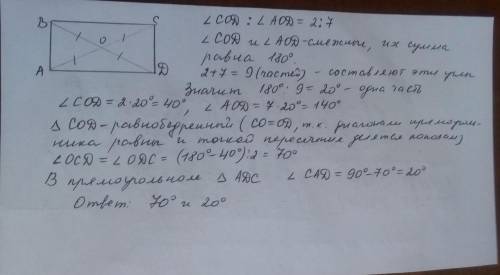 B C
O
A D
∠COD : ∠AOD = 2:7
∠COD и ∠AOD - смежные, их сумма
равна 180°.
2+7 = 9 (частей) - составляют эти углы
Значит 180° : 9 = 20° - одна часть
∠COD = 2·20° = 40°, ∠AOD = 7·20° = 140°
△ COD - равнобедренный (CO=OD, т.к. диагонали прямоуголь-
ника равны и точкой пересечения делятся пополам)
∠OCD = ∠ODC = (180° - 40°) : 2 = 70°
В прямоугольном △ ADC ∠CAD = 90° - 70° = 20°
Ответ: 70° и 20°